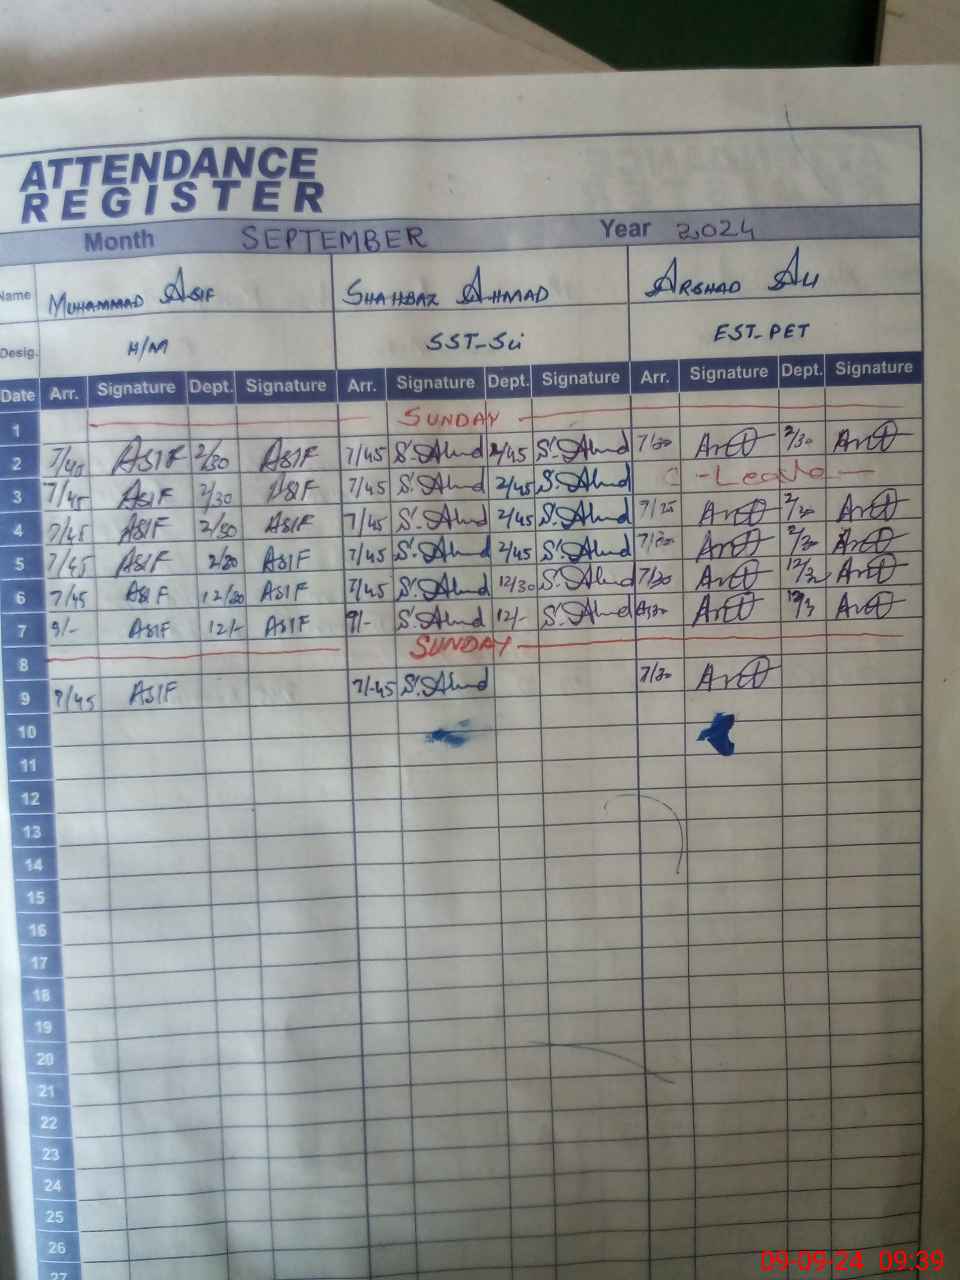 ATTENDANCE
REGISTER
Month SEPTEMBER Year 2024
Name MUHAMMAD ASIF SHAHBAZ AHMAD ARSHAD ALI
Desig. H/M SST-Sci EST-PET
Date Arr. Signature Dept. Signature Arr. Signature Dept. Signature Arr. Signature Dept. Signature
1 SUNDAY
2 7/45 ASIF 2/30 ASIF 7/45 S.Ahmd 2/45 S.Ahmd 7/30 2/30
3 7/45 ASIF 2/30 ASIF 7/45 S.Ahmd 2/45 S.Ahmd C-Leave
4 7/45 ASIF 2/30 ASIF 7/45 S.Ahmd 2/45 S.Ahmd 7/25 2/30
5 7/45 ASIF 2/30 ASIF 7/45 S.Ahmd 2/45 S.Ahmd 7/30 2/30
6 7/45 ASIF 12/30 ASIF 7/45 S.Ahmd 12/30 S.Ahmd 7/30
7 9/- ASIF 12/- ASIF 9/- S.Ahmd 12/- S.Ahmd
8 SUNDAY
9 7/45 ASIF 7/-45 S.Ahmd 7/30
10
11
12
13
14
15
16
17
18
19
20
21
22
23
24
25
26
27
09-09-24 09:39